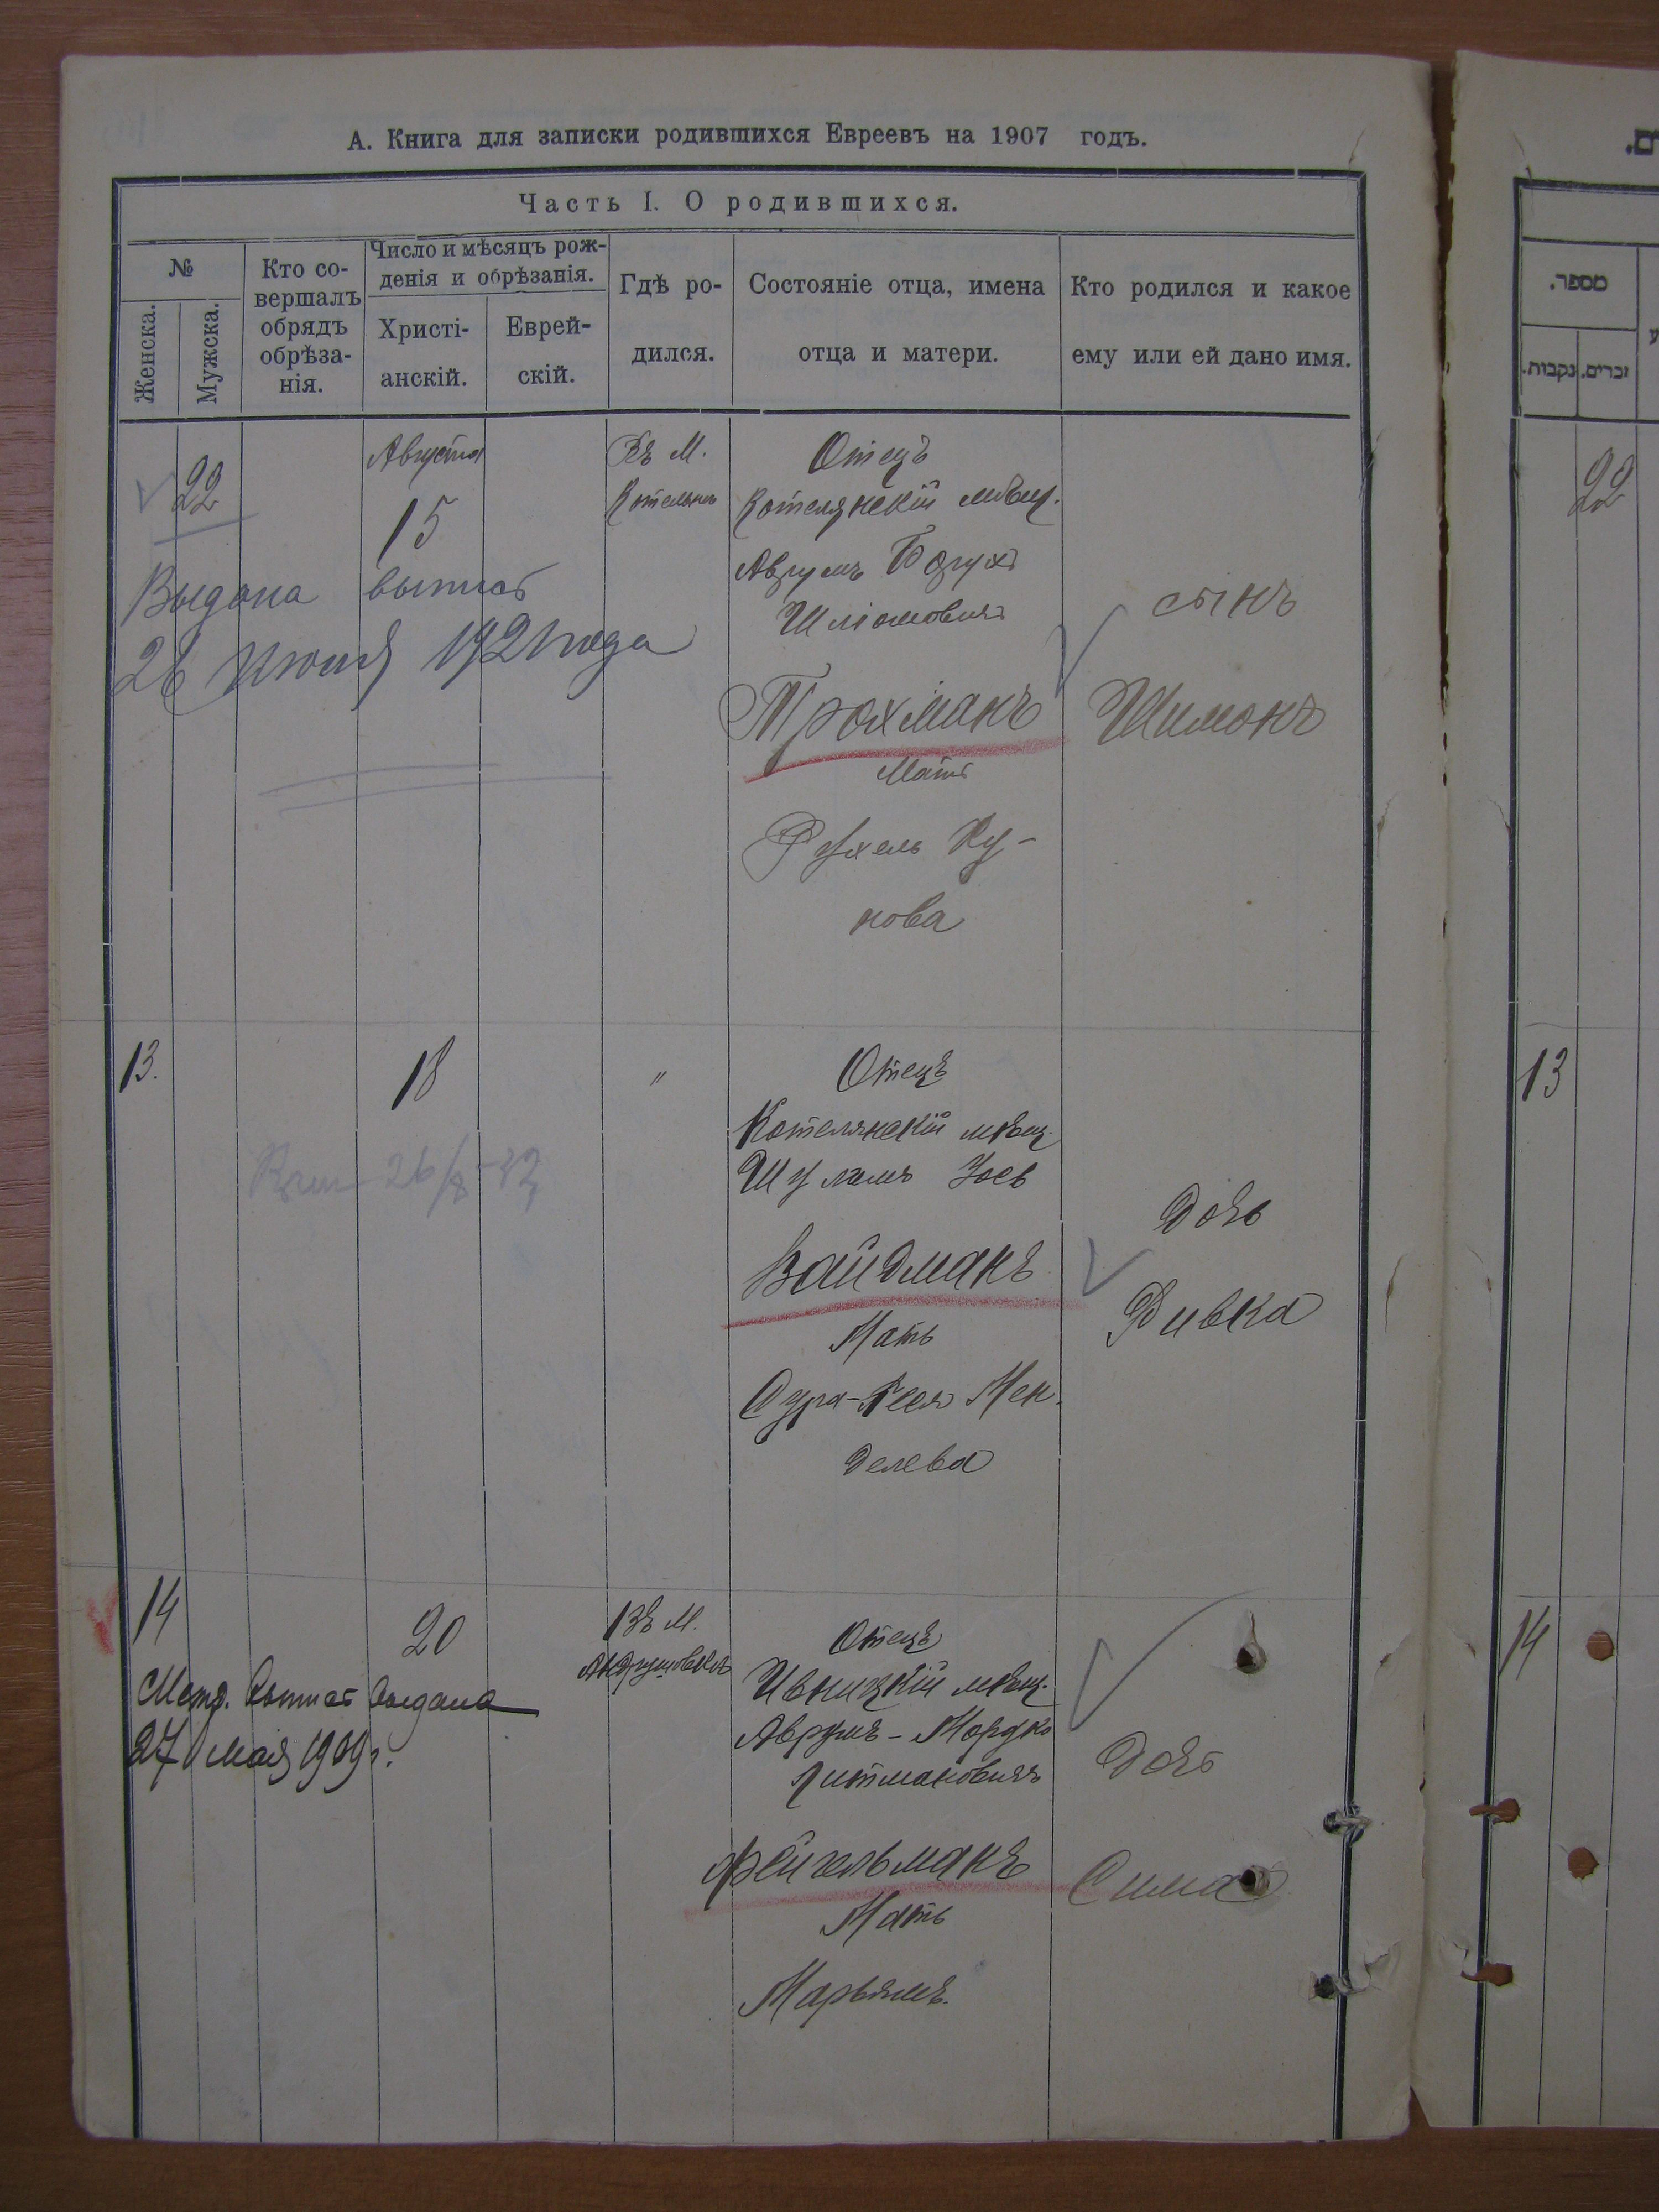 А. Книга для записки родившихся Евреевъ на 1907 годъ.
Часть I. О родившихся.
№
Женска.
Мужска.
Кто со-
вершалъ
обрядъ
обрѣза-
нія.
Число и мѣсяцъ рож-
денія и обрѣзанія.
Христі-
анскій.
Еврей-
скій.
Гдѣ ро-
дился.
Состояніе отца, имена
отца и матери.
Кто родился и какое
ему или ей дано имя.
22
Августа
15
Въ М.
Котельнѣ
Отецъ
Котелянскій мѣщ.
Аврумъ Борухъ
Шліомовичъ
Трахманъ
Мать
Рухель Ну-
хова
сынъ
Шимонъ
Выдана выпись
26 Июня 1921 года
13.
18
"
Отецъ
Котелянскій мѣщ.
Шулимъ
Вайдманъ
Мать
Сура-Гееся Мен-
делева
Дочь
Ривка
14
20
Въ М.
Андрушовкѣ
Отецъ
Ивницкій мѣщ.
Аврумъ-Мордко
Литмановичъ
Фейгельманъ
Мать
Марьямъ.
Дочь
Сима
Метр. выпись выдана
27 мая 1909 г.
מספר.
נקבות.
זכרים.
22
13
14